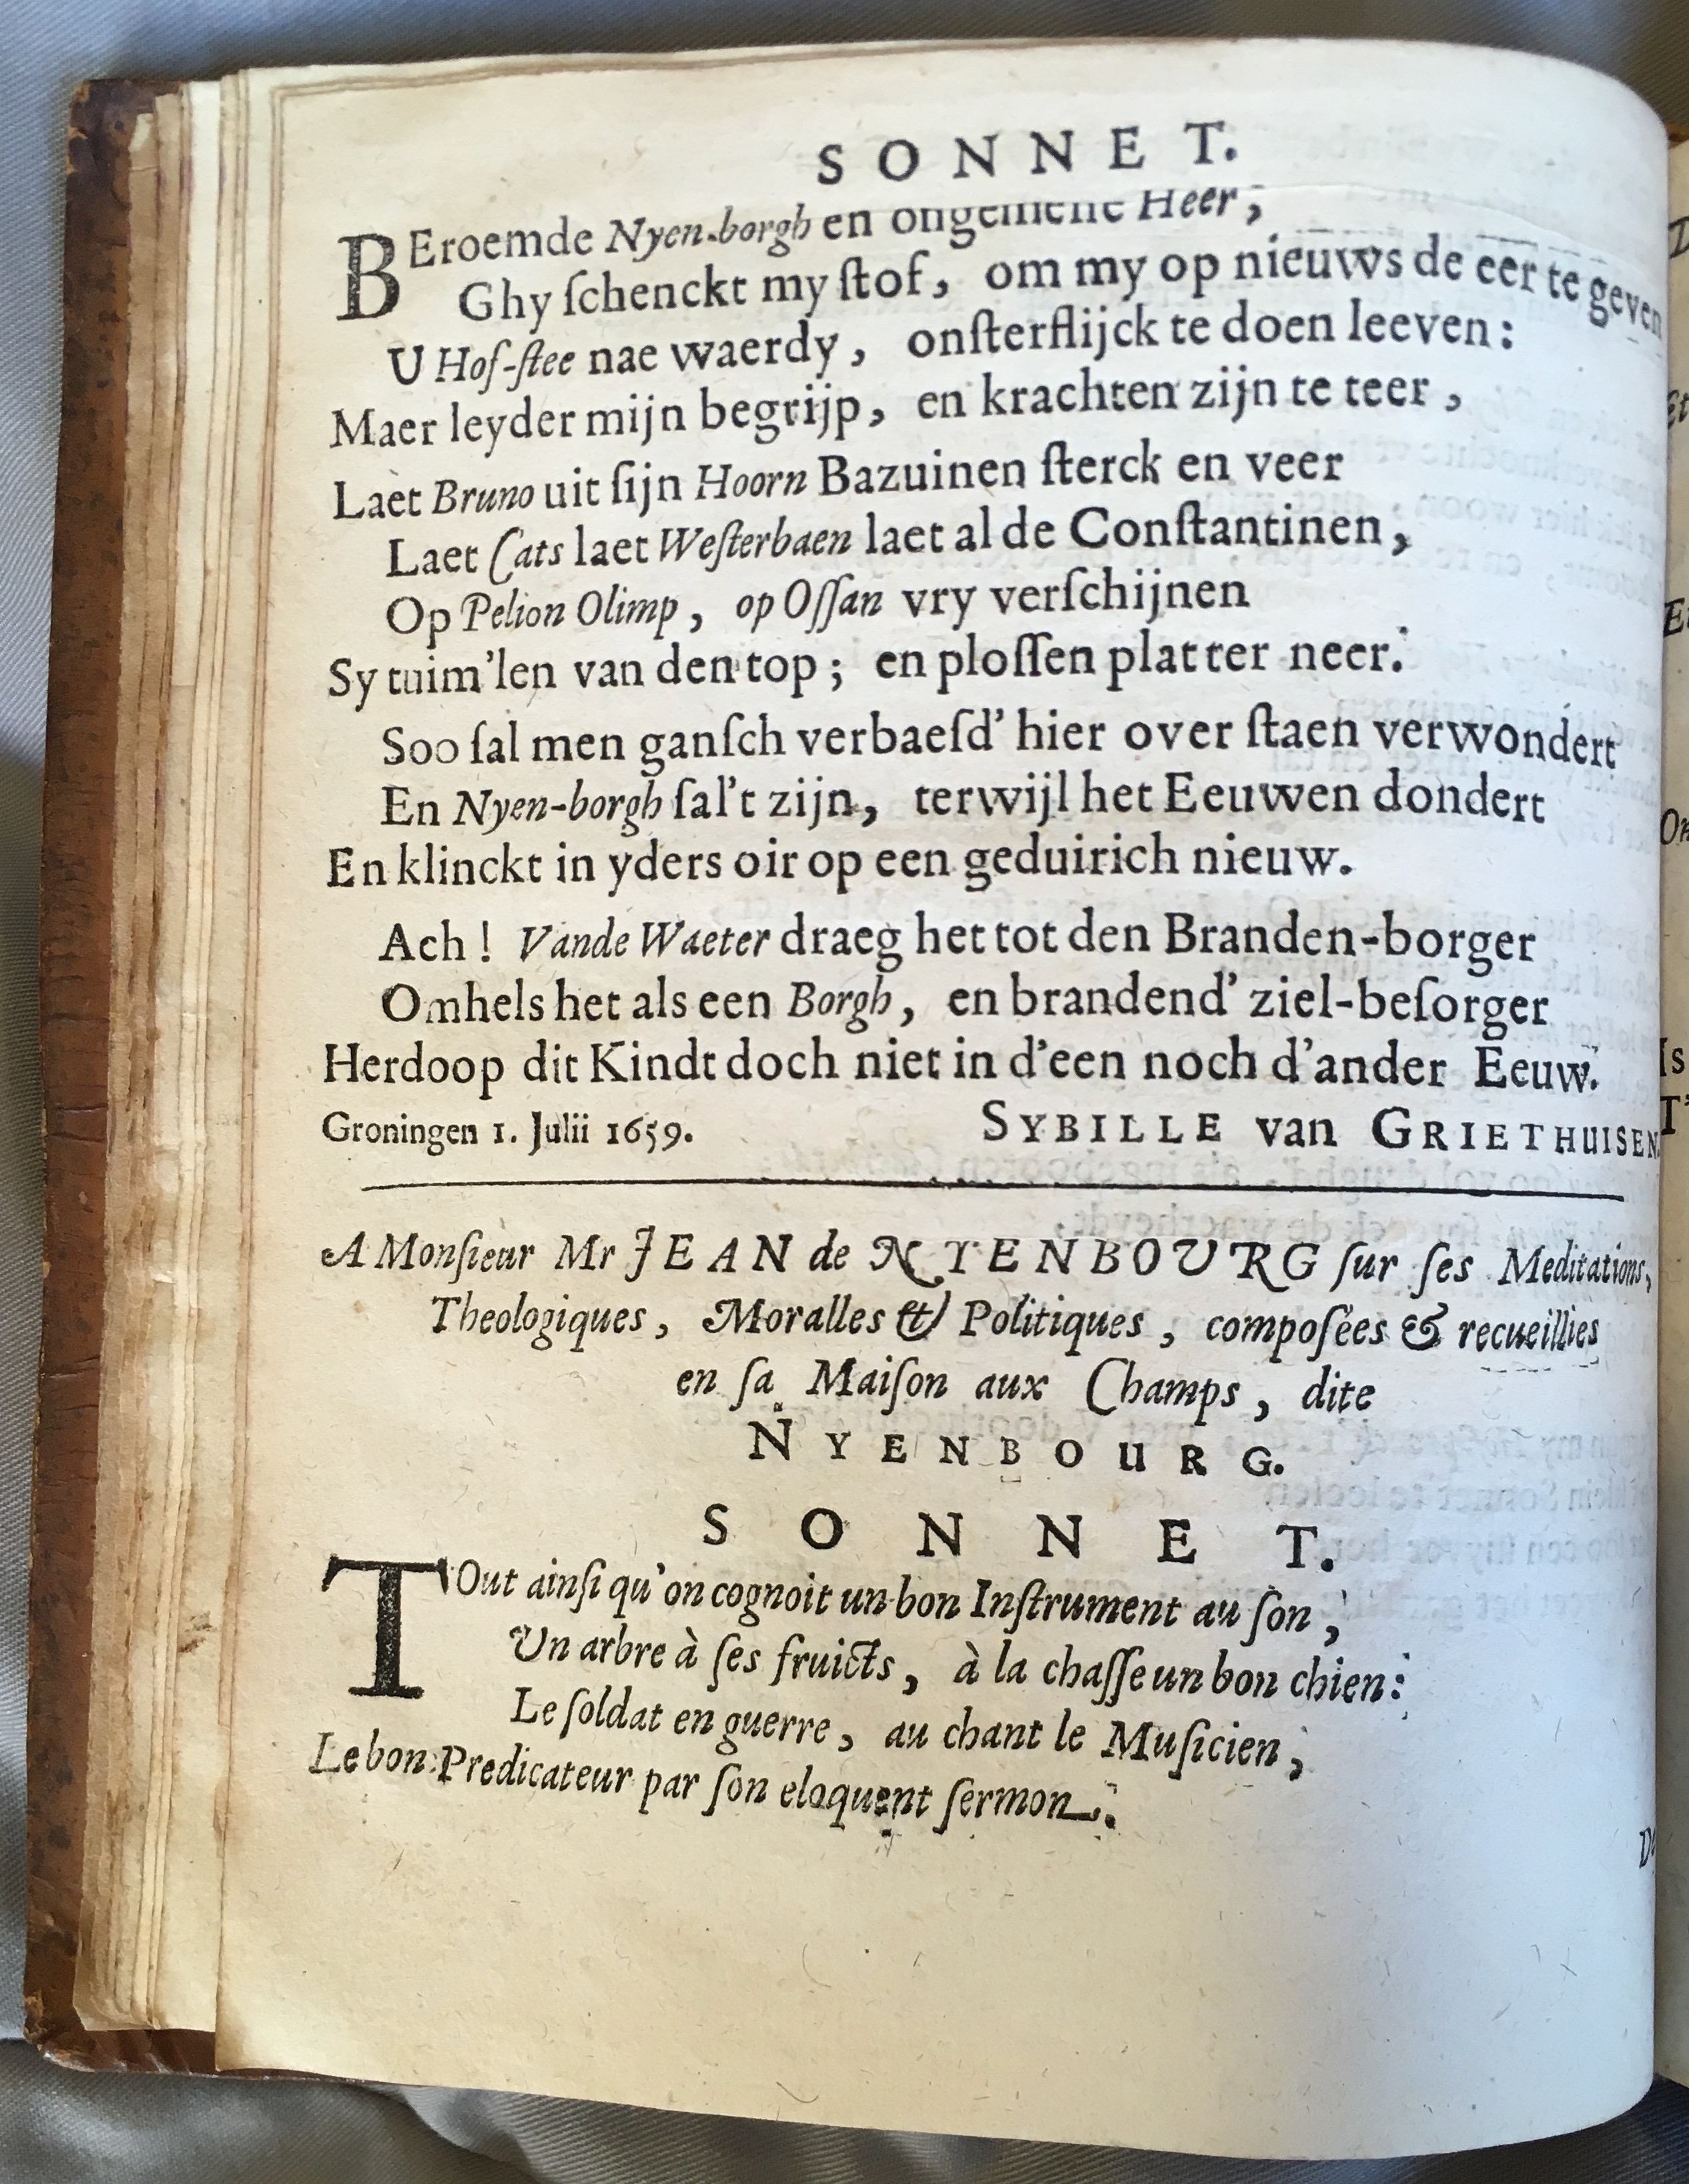 SONNET.
BEroemde Nyen-borgh en ongemene Heer,
Ghy ſchenckt my ſtof, om my op nieuws de eer te geven
U Hof-ſtee nae waerdy, onſterflijck te doen leeven:
Maer leyder mijn begrijp, en krachten zijn te teer,
Laet Bruno uit ſijn Hoorn Bazuinen ſterck en veer
Laet Cats laet Weſterbaen laet al de Conſtantinen,
Op Pelion Olimp, op Oſſan vry verſchijnen
Sy tuim'len van den top; en ploſſen platter neer.
Soo ſal men ganſch verbaeſd' hier over ſtaen verwondert
En Nyen-borgh ſal't zijn, terwijl het Eeuwen dondert
En klinckt in yders oir op een geduirich nieuw.
Ach! Vande Waeter draeg het tot den Branden-borger
Omhels het als een Borgh, en brandend' ziel-beſorger
Herdoop dit Kindt doch niet in d'een noch d'ander Eeuw.
Groningen 1. Julii 1659. SYBILLE van GRIETHUISEN.
A Monſieur Mr JEAN de NYENBOURG ſur ſes Meditations,
Theologiques, Moralles & Politiques, compoſées & recueillies
en ſa Maiſon aux Champs, dite
NYENBOURG.
SONNET.
TOut ainſi qu'on cognoit un bon Inſtrument au ſon,
Un arbre à ſes fruicts, à la chaſſe un bon chien:
Le ſoldat en guerre, au chant le Muſicien,
Le bon Predicateur par ſon eloquent ſermon.